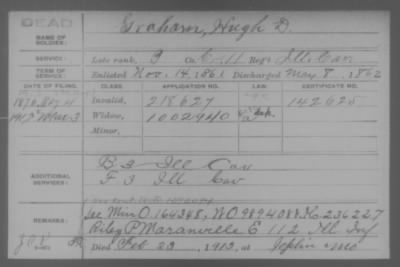 DEAD
NAME OF SOLDIER: Graham, Hugh D.
SERVICE: Late rank, P Co. C 11 Reg't Ill. Cav
TERM OF SERVICE: Enlisted Nov. 14, 1861 Discharged May 8, 1862
DATE OF FILING. CLASS. APPLICATION NO. LAW. CERTIFICATE NO.
Invalid, 218627 142625
Widow, 1002940
Minor,
ADDITIONAL SERVICES: B 3 Ill Cav
F 3 Ill Cav
REMARKS: See Min O. 164348, W.O. 989408
Riley P Maranville E 112 Ill Inf
Died Feb 23, 1912, at Joplin Mo